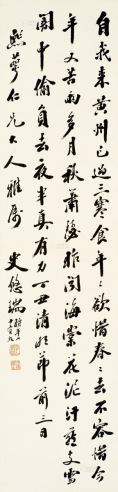 自我來黃州已過三寒食年〻欲惜春〻去不容惜今
年又苦雨兩月秋蕭瑟卧聞海棠花泥汙燕支雪
闇中偷負去夜半真有力丁丑清明節前三日
熙蕚仁兄大人雅屬 史悠瑞